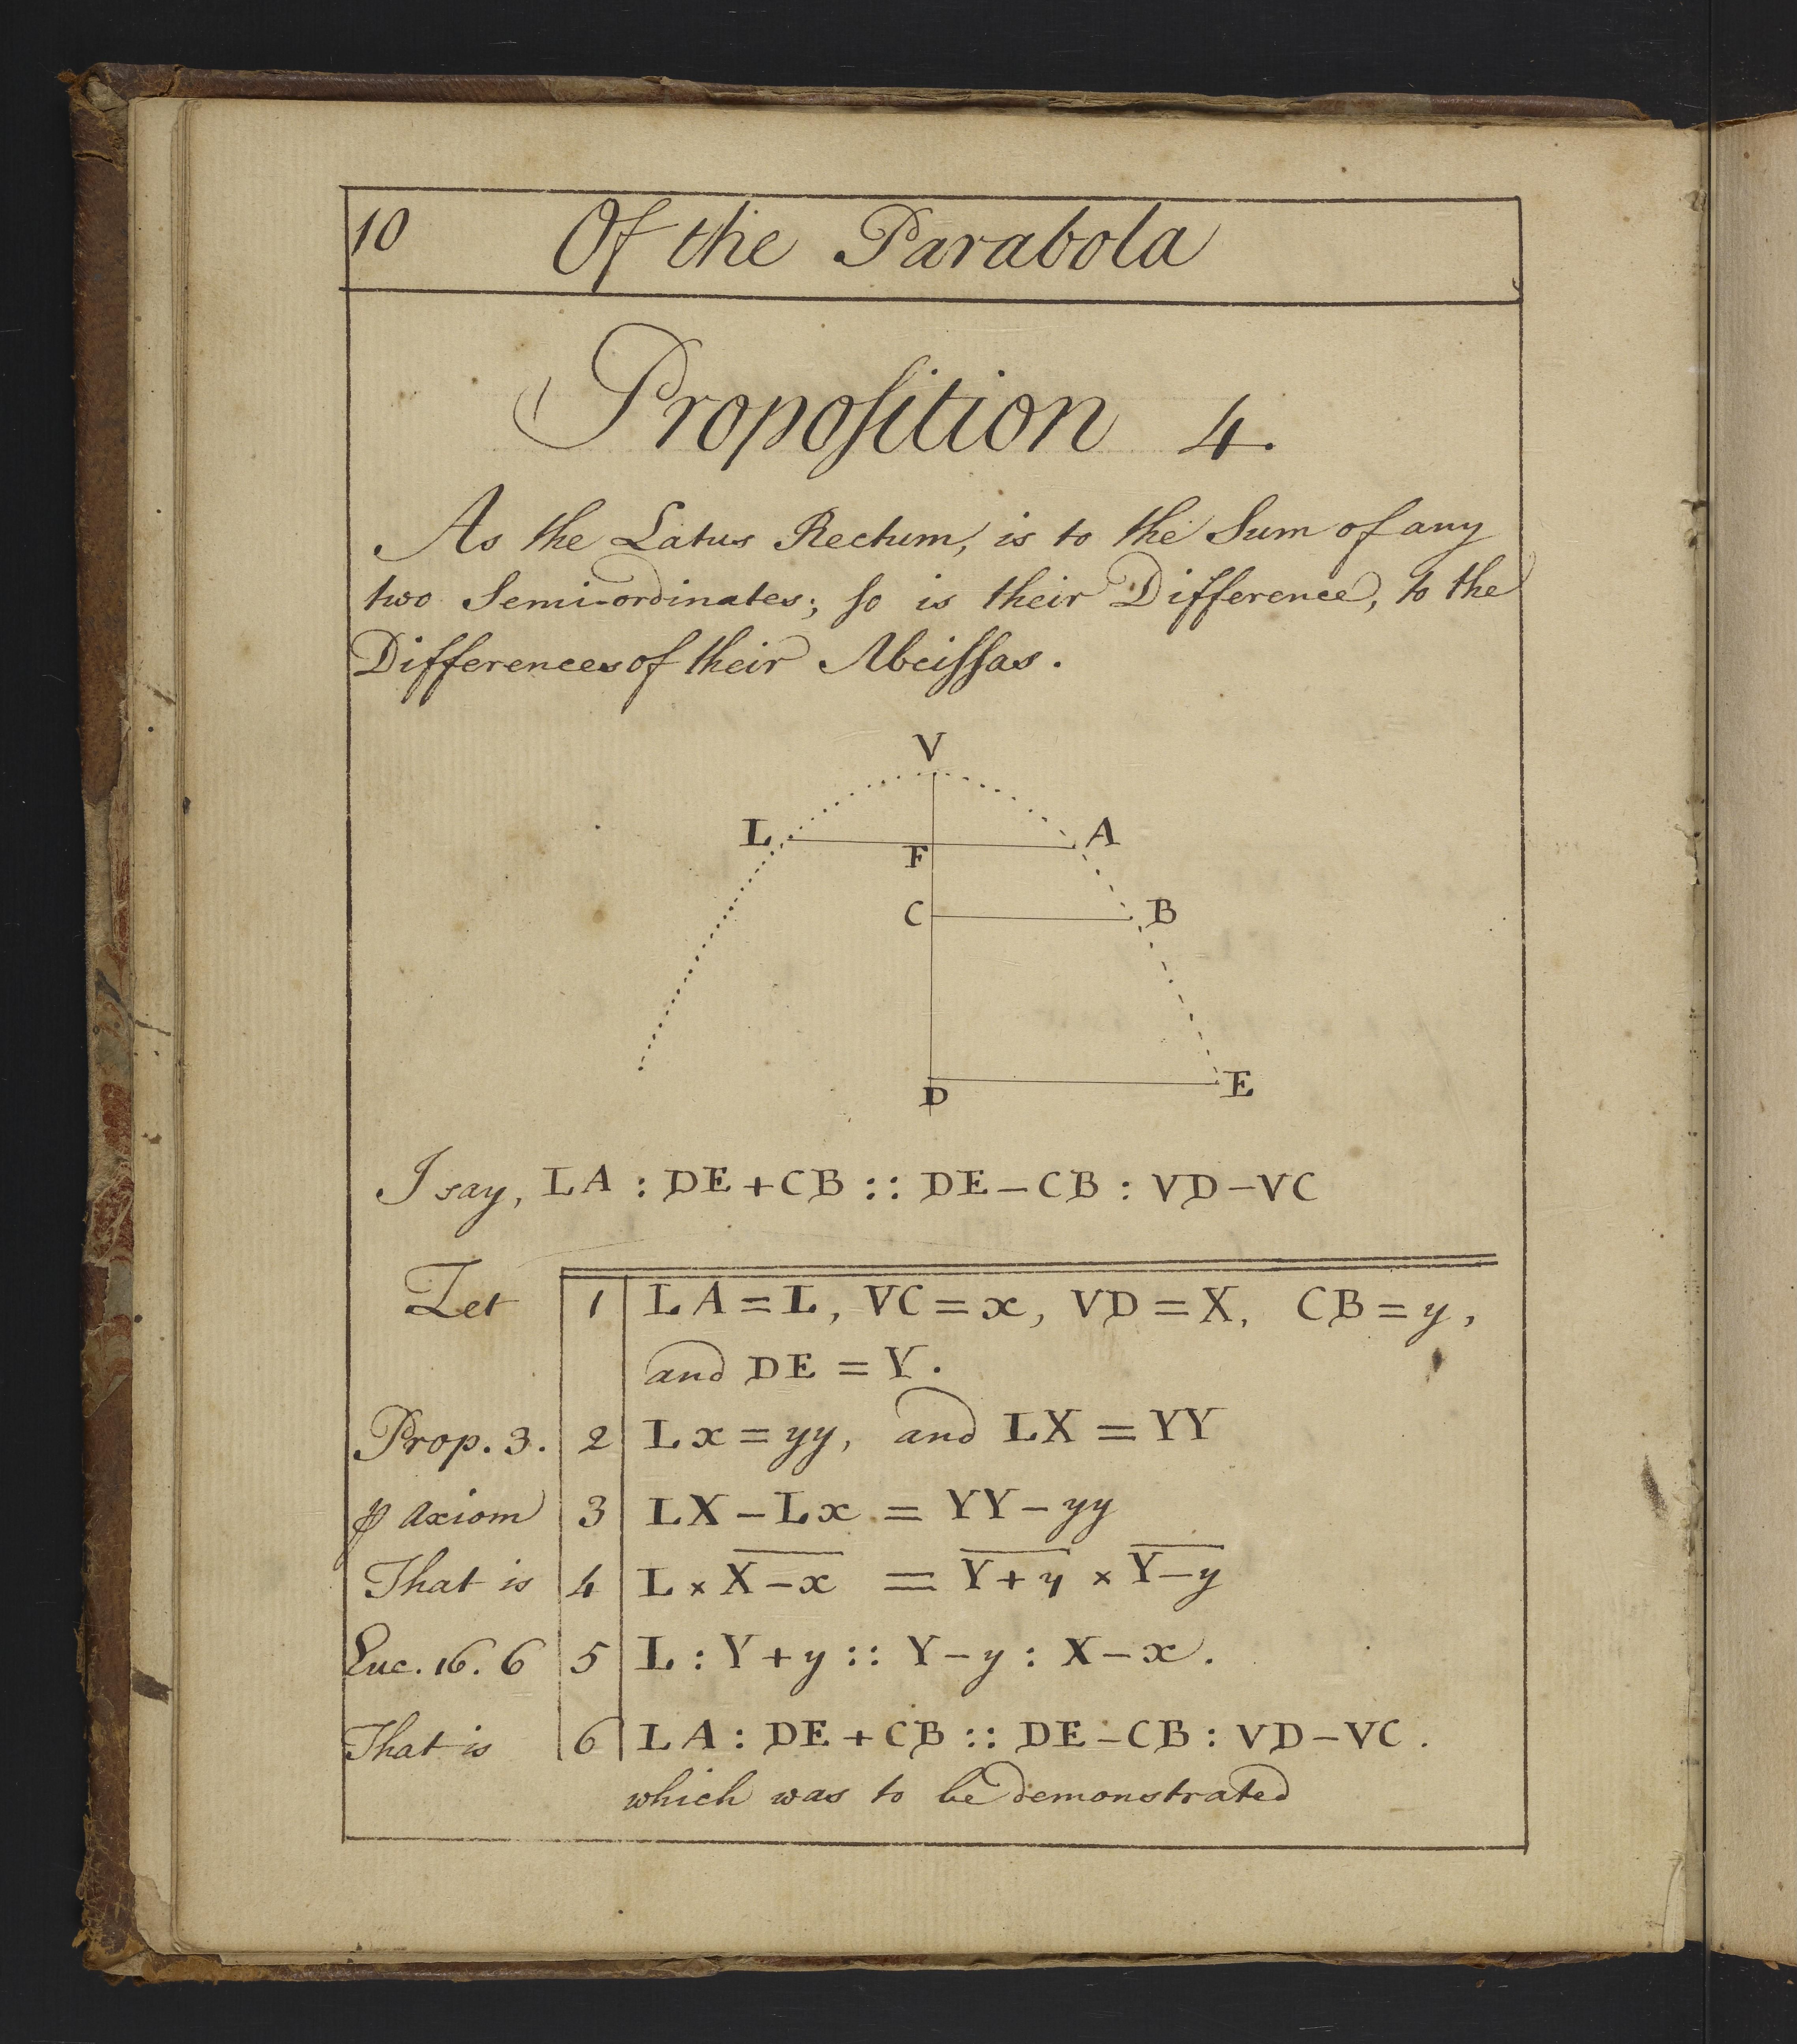 10 Of the Parabola
Propoſition 4.
As the Latus Rectum, is to the Sum of any
two Semi-ordinates; ſo is their Difference, to the
Differences of their Abciſſas.
V
L A
F
C B
D E
I say, LA : DE+CB :: DE–CB : VD–VC
Let 1 LA = L, VC = x, VD = X, CB = y,
and DE = Y.
Prop. 3. 2 Lx = yy, and LX = YY
⅌ axiom 3 LX – Lx = YY – yy
That is 4 L × X̅ ̅–̅ ̅x̅ = Y̅ ̅+̅ ̅y̅ × Y̅ ̅–̅ ̅y̅
Euc. 16. 6 5 L : Y + y :: Y – y : X – x.
That is 6 LA : DE + CB :: DE – CB : VD – VC.
which was to be demonstrated